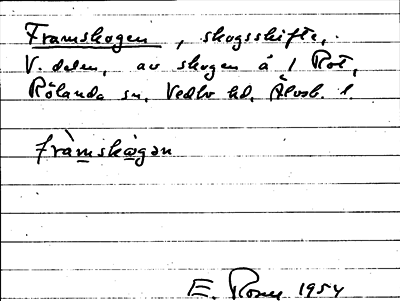 Framskogen, skogsskifte,
V. delen, av skogen å 1 Rot,
Rölanda sn, Vedbo hd, Älvsb. l.
fràmskɷgən
E. Rosell 1954